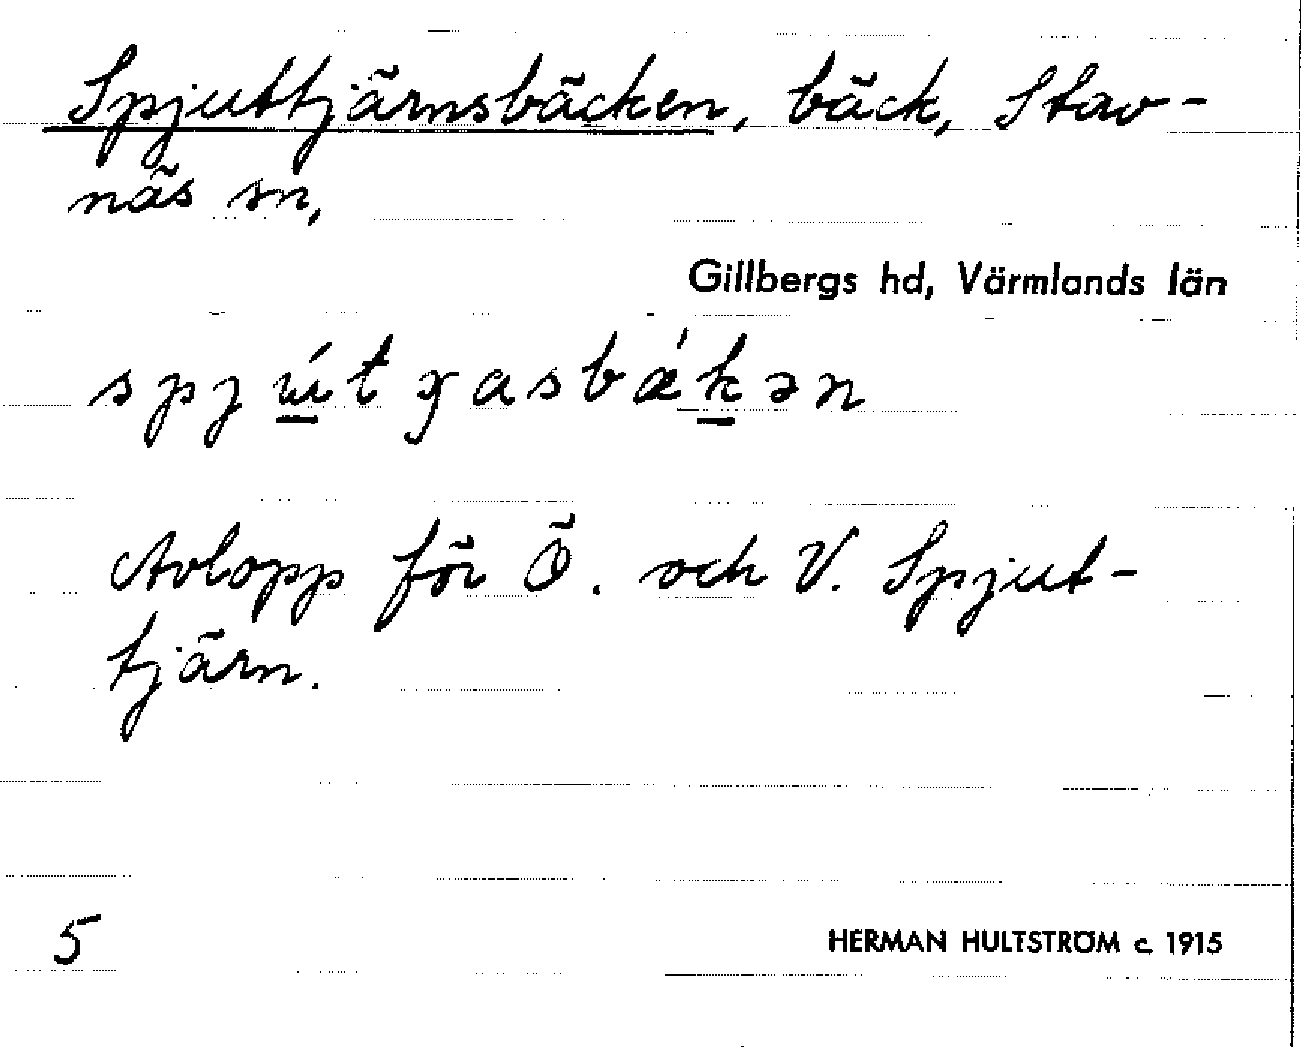 Spjuttjärnsbäcken, bäck, Stav-
näs sn,
Gillbergs hd, Värmlands län
Avlopp för Ö. och V. Spjut-
tjärn.
5
HERMAN HULTSTRÖM c. 1915